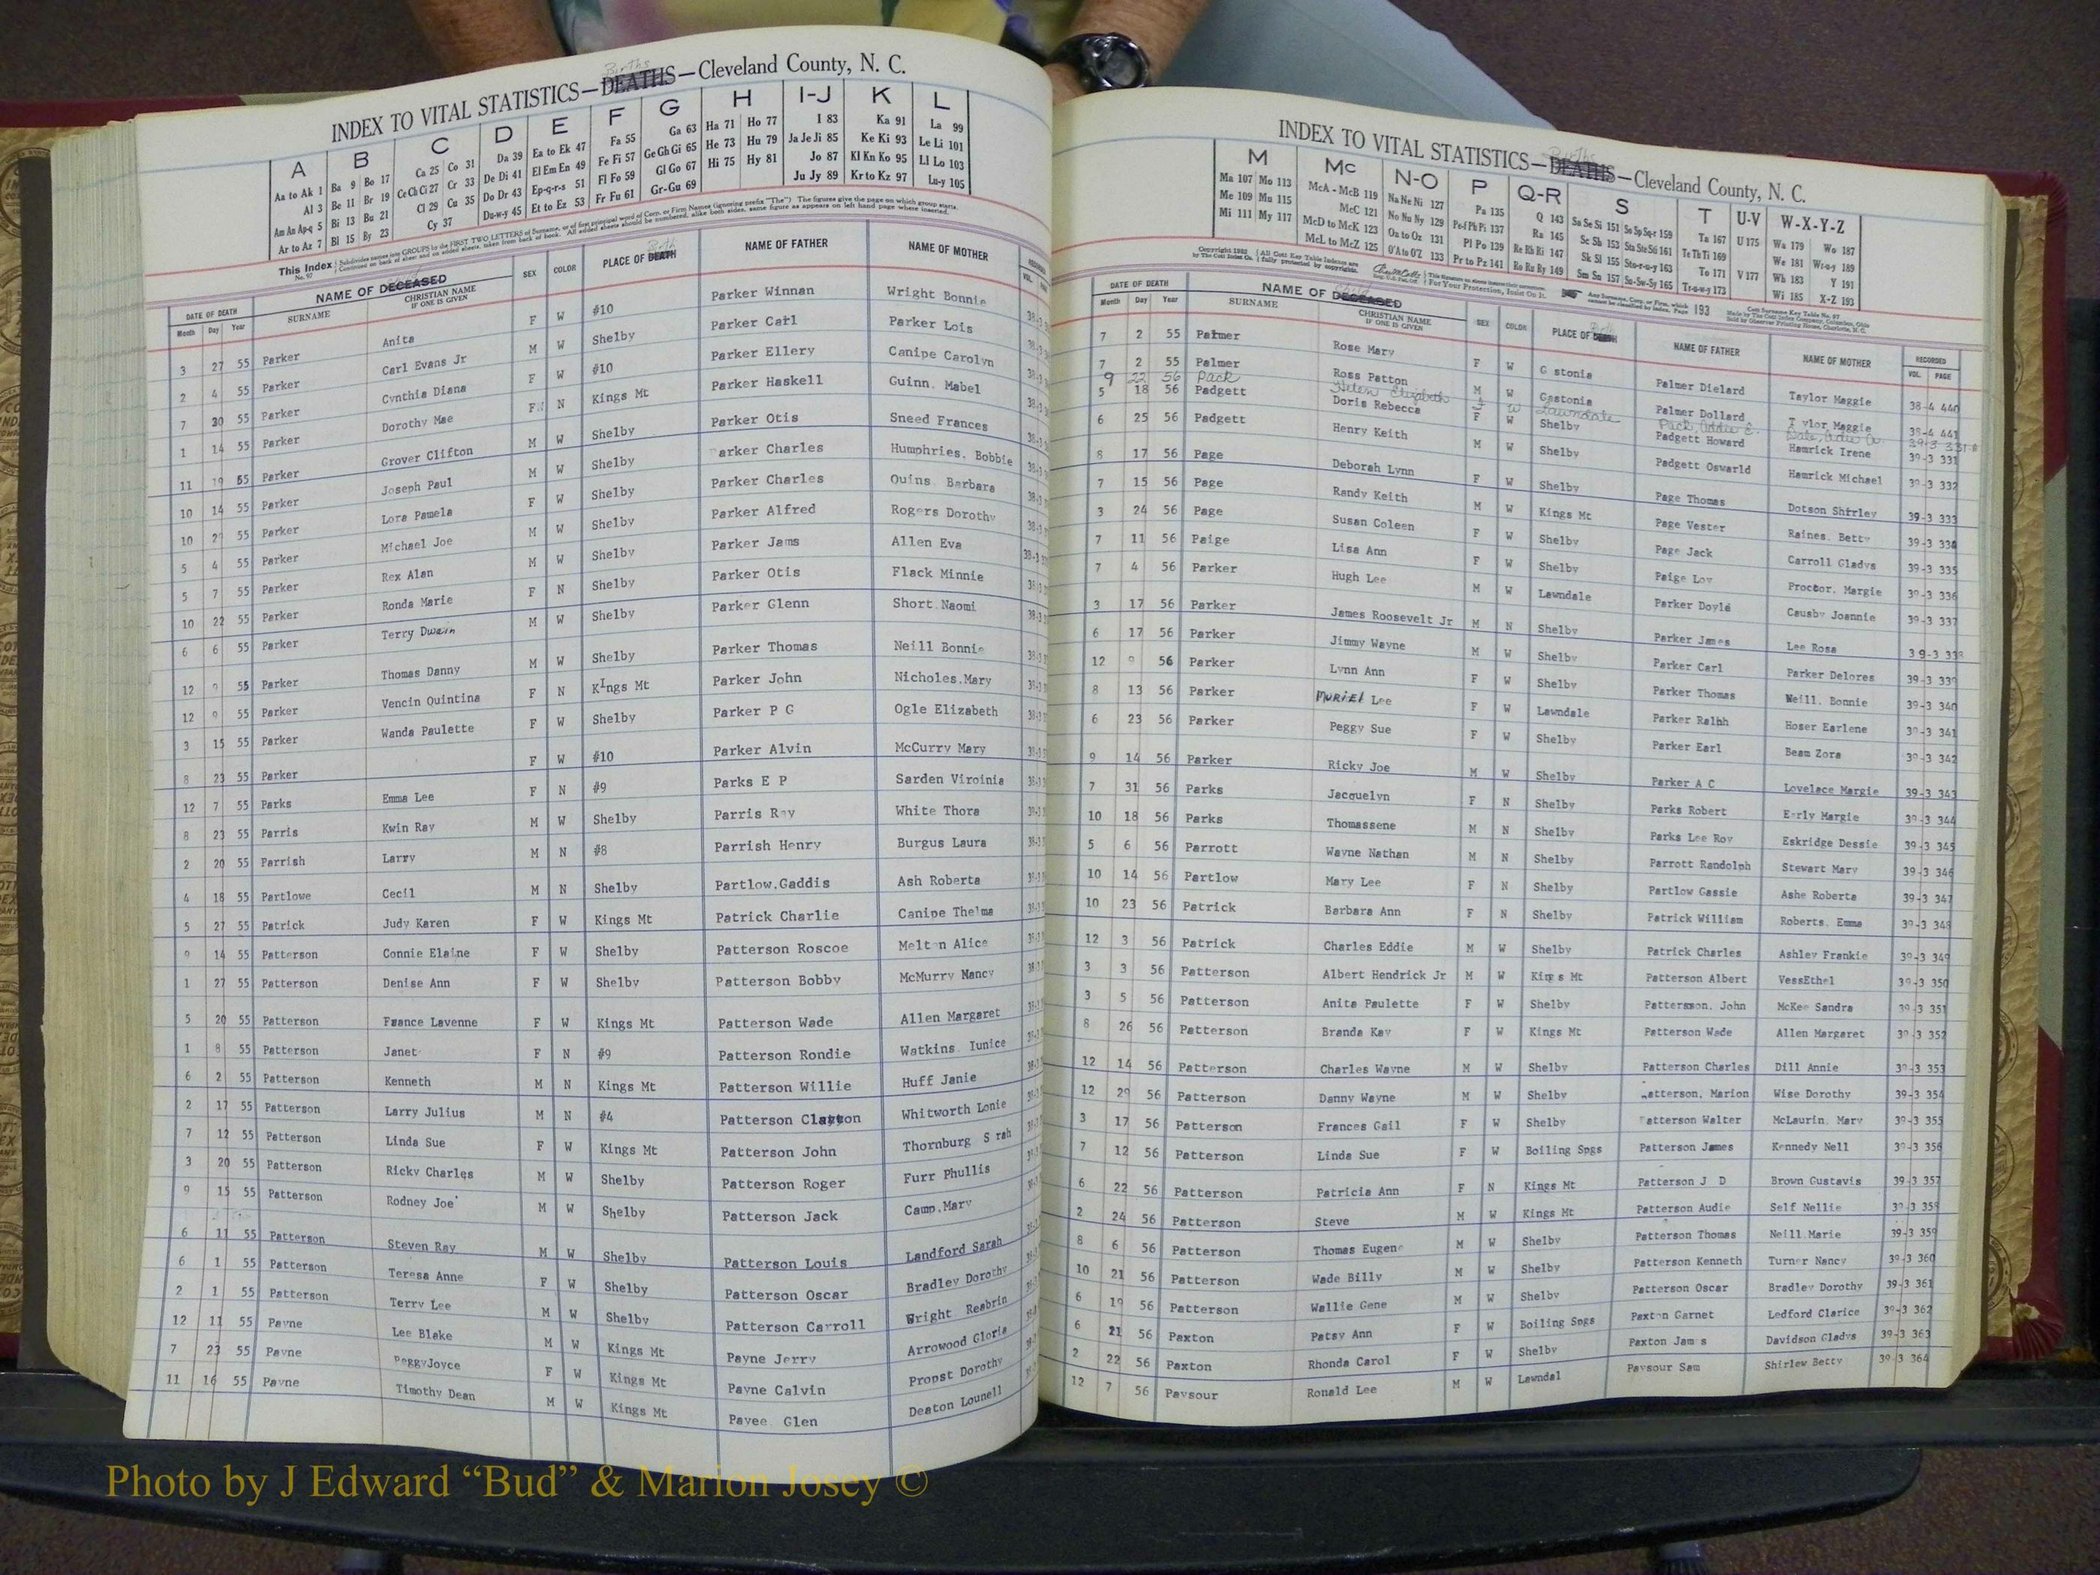 INDEX TO VITAL STATISTICS—DEATHS—Cleveland County, N. C.
Births
A B C D E F G H I-J K L
Aa to Ak 1 Ba 9 Bo 17 Ca 25 Co 31 Da 39 Ea to Ek 47 Fa 55 Ga 63 Ha 71 Ho 77 I 83 Ka 91 La 99
Al 3 Be 11 Br 19 Ce Ch Ci 27 Cr 33 De Di 41 El Em En 49 Fe Fi 57 Ge Gh Gi 65 He 73 Hu 79 Ja Je Ji 85 Ke Ki 93 Le Li 101
Am An Ap-q 5 Bi 13 Bu 21 Cl 29 Cu 35 Do Dr 43 Ep-q-r-s 51 Fl Fo 59 Gl Go 67 Hi 75 Hy 81 Jo 87 Kl Kn Ko 95 Ll Lo 103
Ar to Az 7 Bl 15 By 23 Cy 37 Du-w-y 45 Et to Ez 53 Fr Fu 61 Gr-Gu 69 Ju Jy 89 Kr to Kz 97 Lu-y 105
DATE OF DEATH NAME OF DECEASED SEX COLOR PLACE OF DEATH Birth NAME OF FATHER NAME OF MOTHER
Month Day Year SURNAME CHRISTIAN NAME IF ONE IS GIVEN
3 27 55 Parker Anita F W #10 Parker Winnan Wright Bonnie
2 4 55 Parker Carl Evans Jr M W Shelby Parker Carl Parker Lois
7 20 55 Parker Cynthia Diana F W #10 Parker Ellery Canipe Carolyn
1 14 55 Parker Dorothy Mae F N Kings Mt Parker Haskell Guinn, Mabel
11 19 55 Parker Grover Clifton M W Shelby Parker Otis Sneed Frances
10 14 55 Parker Joseph Paul M W Shelby arker Charles Humphries, Bobbie
10 55 Parker Lora Pamela F W Shelby Parker Charles Quins Barbara
5 4 55 Parker Michael Joe M W Shelby Parker Alfred Rogers Dorothy
5 7 55 Parker Rex Alan M W Shelby Parker Jams Allen Eva
10 22 55 Parker Ronda Marie F N Shelby Parker Otis Flack Minnie
6 6 55 Parker Terry Dwain M W Shelby Parker Glenn Short Naomi
12 9 55 Parker Thomas Danny M W Shelby Parker Thomas Neill Bonnie
12 9 55 Parker Vencin Quintina F N KIngs Mt Parker John Nicholes,Mary
3 15 55 Parker Wanda Paulette F W Shelby Parker P G Ogle Elizabeth
8 23 55 Parker F W #10 Parker Alvin McCurry Mary
12 7 55 Parks Emma Lee F N #9 Parks E P Sarden Viroinia
8 23 55 Parris Kwin Ray M W Shelby Parris Ray White Thora
2 20 55 Parrish Larry M N #8 Parrish Henry Burgus Laura
4 18 55 Partlowe Cecil M N Shelby Partlow,Gaddis Ash Roberta
5 27 55 Patrick Judy Karen F W Kings Mt Patrick Charlie Canipe Thelma
9 14 55 Patterson Connie Elaine F W Shelby Patterson Roscoe Melton Alice
1 27 55 Patterson Denise Ann F W Shelby Patterson Bobby McMurry Nancy
5 20 55 Patterson France Lavenne F W Kings Mt Patterson Wade Allen Margaret
1 8 55 Patterson Janet F N #9 Patterson Rondie Watkins Iunice
6 2 55 Patterson Kenneth M N Kings Mt Patterson Willie Huff Janie
2 17 55 Patterson Larry Julius M N #4 Patterson Clayton Whitworth Lonie
7 12 55 Patterson Linda Sue F W Kings Mt Patterson John Thornburg S rah
3 20 55 Patterson Ricky Charles M W Shelby Patterson Roger Furr Phullis
9 15 55 Patterson Rodney Joe M W Shelby Patterson Jack Camp,Mary
6 11 55 Patterson Steven Ray M W Shelby Patterson Louis Landford Sarah
6 1 55 Patterson Teresa Anne F W Shelby Patterson Oscar Bradley Dorothy
2 1 55 Patterson Terry Lee M W Shelby Patterson Carroll Wright Reabrin
12 11 55 Payne Lee Blake M W Kings Mt Payne Jerry Arrowood Gloria
7 23 55 Payne PeggyJoyce F W Kings Mt Payne Calvin Propst Dorothy
11 16 55 Payne Timothy Dean M W Kings Mt Payee Glen Deaton Lounell
INDEX TO VITAL STATISTICS—DEATHS—Cleveland County, N. C.
Births
M Mc N-O P Q-R S T U-V W-X-Y-Z
Ma 107 Mo 113 McA - McB 119 Na Ne Ni 127 Pa 135 Q 143 Sa Se Si 151 So Sp Sq-r 159 Ta 167 U 175 Wa 179 Wo 187
Me 109 Mu 115 McC 121 No Nu Ny 129 Pe-f Ph Pi 137 Ra 145 Sc Sh 153 Sta Ste Sti 161 Te Th Ti 169 We 181 Wr-u-y 189
Mi 111 My 117 McD to McK 123 Oa to Oz 131 Pl Po 139 Re Rh Ri 147 Sk Sl 155 Sto-r-u-y 163 To 171 V 177 Wh 183 Y 191
McL to McZ 125 O'A to O'Z 133 Pr to Pz 141 Ro Ru Ry 149 Sm Sn 157 Su-Sw-Sy 165 Tr-u-w-y 173 Wi 185 X-Z 193
DATE OF DEATH NAME OF DECEASED Child SEX COLOR PLACE OF DEATH Birth NAME OF FATHER NAME OF MOTHER RECORDED
Month Day Year SURNAME CHRISTIAN NAME IF ONE IS GIVEN VOL. PAGE
7 2 55 Palmer Rose Mary F W G stonia Palmer Dielard Taylor Maggie 38-4 440
7 2 55 Palmer Ross Patton M W Gastonia Palmer Dollard T ylor Maggie 38-4 441
9 22 56 Pack Helen Elizabeth F W Lawndale Pack, Addie 39-3 331-A
5 18 56 Padgett Doris Rebecca F W Shelby Padgett Howard Hamrick Irene 39-3 331
6 25 56 Padgett Henry Keith M W Shelby Padgett Oswarld Hamrick Michael 39-3 332
8 17 56 Page Deborah Lynn F W Shelby Page Thomas Dotson Shirley 39-3 333
7 15 56 Page Randy Keith M W Kings Mt Page Vester Raines, Betty 39-3 334
3 24 56 Page Susan Coleen F W Shelby Page Jack Carroll Gladys 39-3 335
7 11 56 Paige Lisa Ann F W Shelby Paige Loy Proctor, Margie 39-3 336
7 4 56 Parker Hugh Lee M W Lawndale Parker Doyle Causby Joannie 39-3 337
3 17 56 Parker James Roosevelt Jr M N Shelby Parker James Lee Rosa 39-3 338
6 17 56 Parker Jimmy Wayne M W Shelby Parker Carl Parker Delores 39-3 339
12 9 56 Parker Lynn Ann F W Shelby Parker Thomas Neill, Bonnie 39-3 340
8 13 56 Parker MURIEL Lee F W Lawndale Parker Ralph Hoser Earlene 39-3 341
6 23 56 Parker Peggy Sue F W Shelby Parker Earl Beam Zora 39-3 342
9 14 56 Parker Ricky Joe M W Shelby Parker A C Lovelace Margie 39-3 343
7 31 56 Parks Jacquelyn F N Shelby Parks Robert Early Margie 39-3 344
10 18 56 Parks Thomassene M N Shelby Parks Lee Roy Eskridge Dessie 39-3 345
5 6 56 Parrott Wayne Nathan M N Shelby Parrott Randolph Stewart Mary 39-3 346
10 14 56 Partlow Mary Lee F N Shelby Partlow Gassie Ashe Roberta 39-3 347
10 23 56 Patrick Barbara Ann F N Shelby Patrick William Roberts, Emma 39-3 348
12 3 56 Patrick Charles Eddie M W Shelby Patrick Charles Ashley Frankie 39-3 349
3 3 56 Patterson Albert Hendrick Jr M W Kings Mt Patterson Albert VessEthel 39-3 350
3 5 56 Patterson Anita Paulette F W Shelby Patterson, John McKee Sandra 39-3 351
8 26 56 Patterson Branda Kay F W Kings Mt Patterson Wade Allen Margaret 39-3 352
12 14 56 Patterson Charles Wayne M W Shelby Patterson Charles Dill Annie 39-3 353
12 29 56 Patterson Danny Wayne M W Shelby atterson, Marion Wise Dorothy 39-3 354
3 17 56 Patterson Frances Gail F W Shelby atterson Walter McLaurin, Mary 39-3 355
7 12 56 Patterson Linda Sue F W Boiling Spgs Patterson James Kennedy Nell 39-3 356
6 22 56 Patterson Patricia Ann F N Kings Mt Patterson J D Brown Gustavis 39-3 357
2 24 56 Patterson Steve M W Kings Mt Patterson Audie Self Nellie 39-3 358
8 6 56 Patterson Thomas Eugene M W Shelby Patterson Thomas Neill,Marie 39-3 359
10 21 56 Patterson Wade Billy M W Shelby Patterson Kenneth Turner Nancy 39-3 360
6 19 56 Patterson Wallie Gene M W Shelby Patterson Oscar Bradley Dorothy 39-3 361
6 21 56 Paxton Patsy Ann F W Boiling Spgs Paxton Garnet Ledford Clarice 39-3 362
2 22 56 Paxton Rhonda Carol F W Shelby Paxton Jam s Davidson Gladys 39-3 363
12 7 56 Paysour Ronald Lee M W Lawndal Paysour Sam Shirlew Betty 39-3 364
Photo by J Edward “Bud” & Marion Josey ©